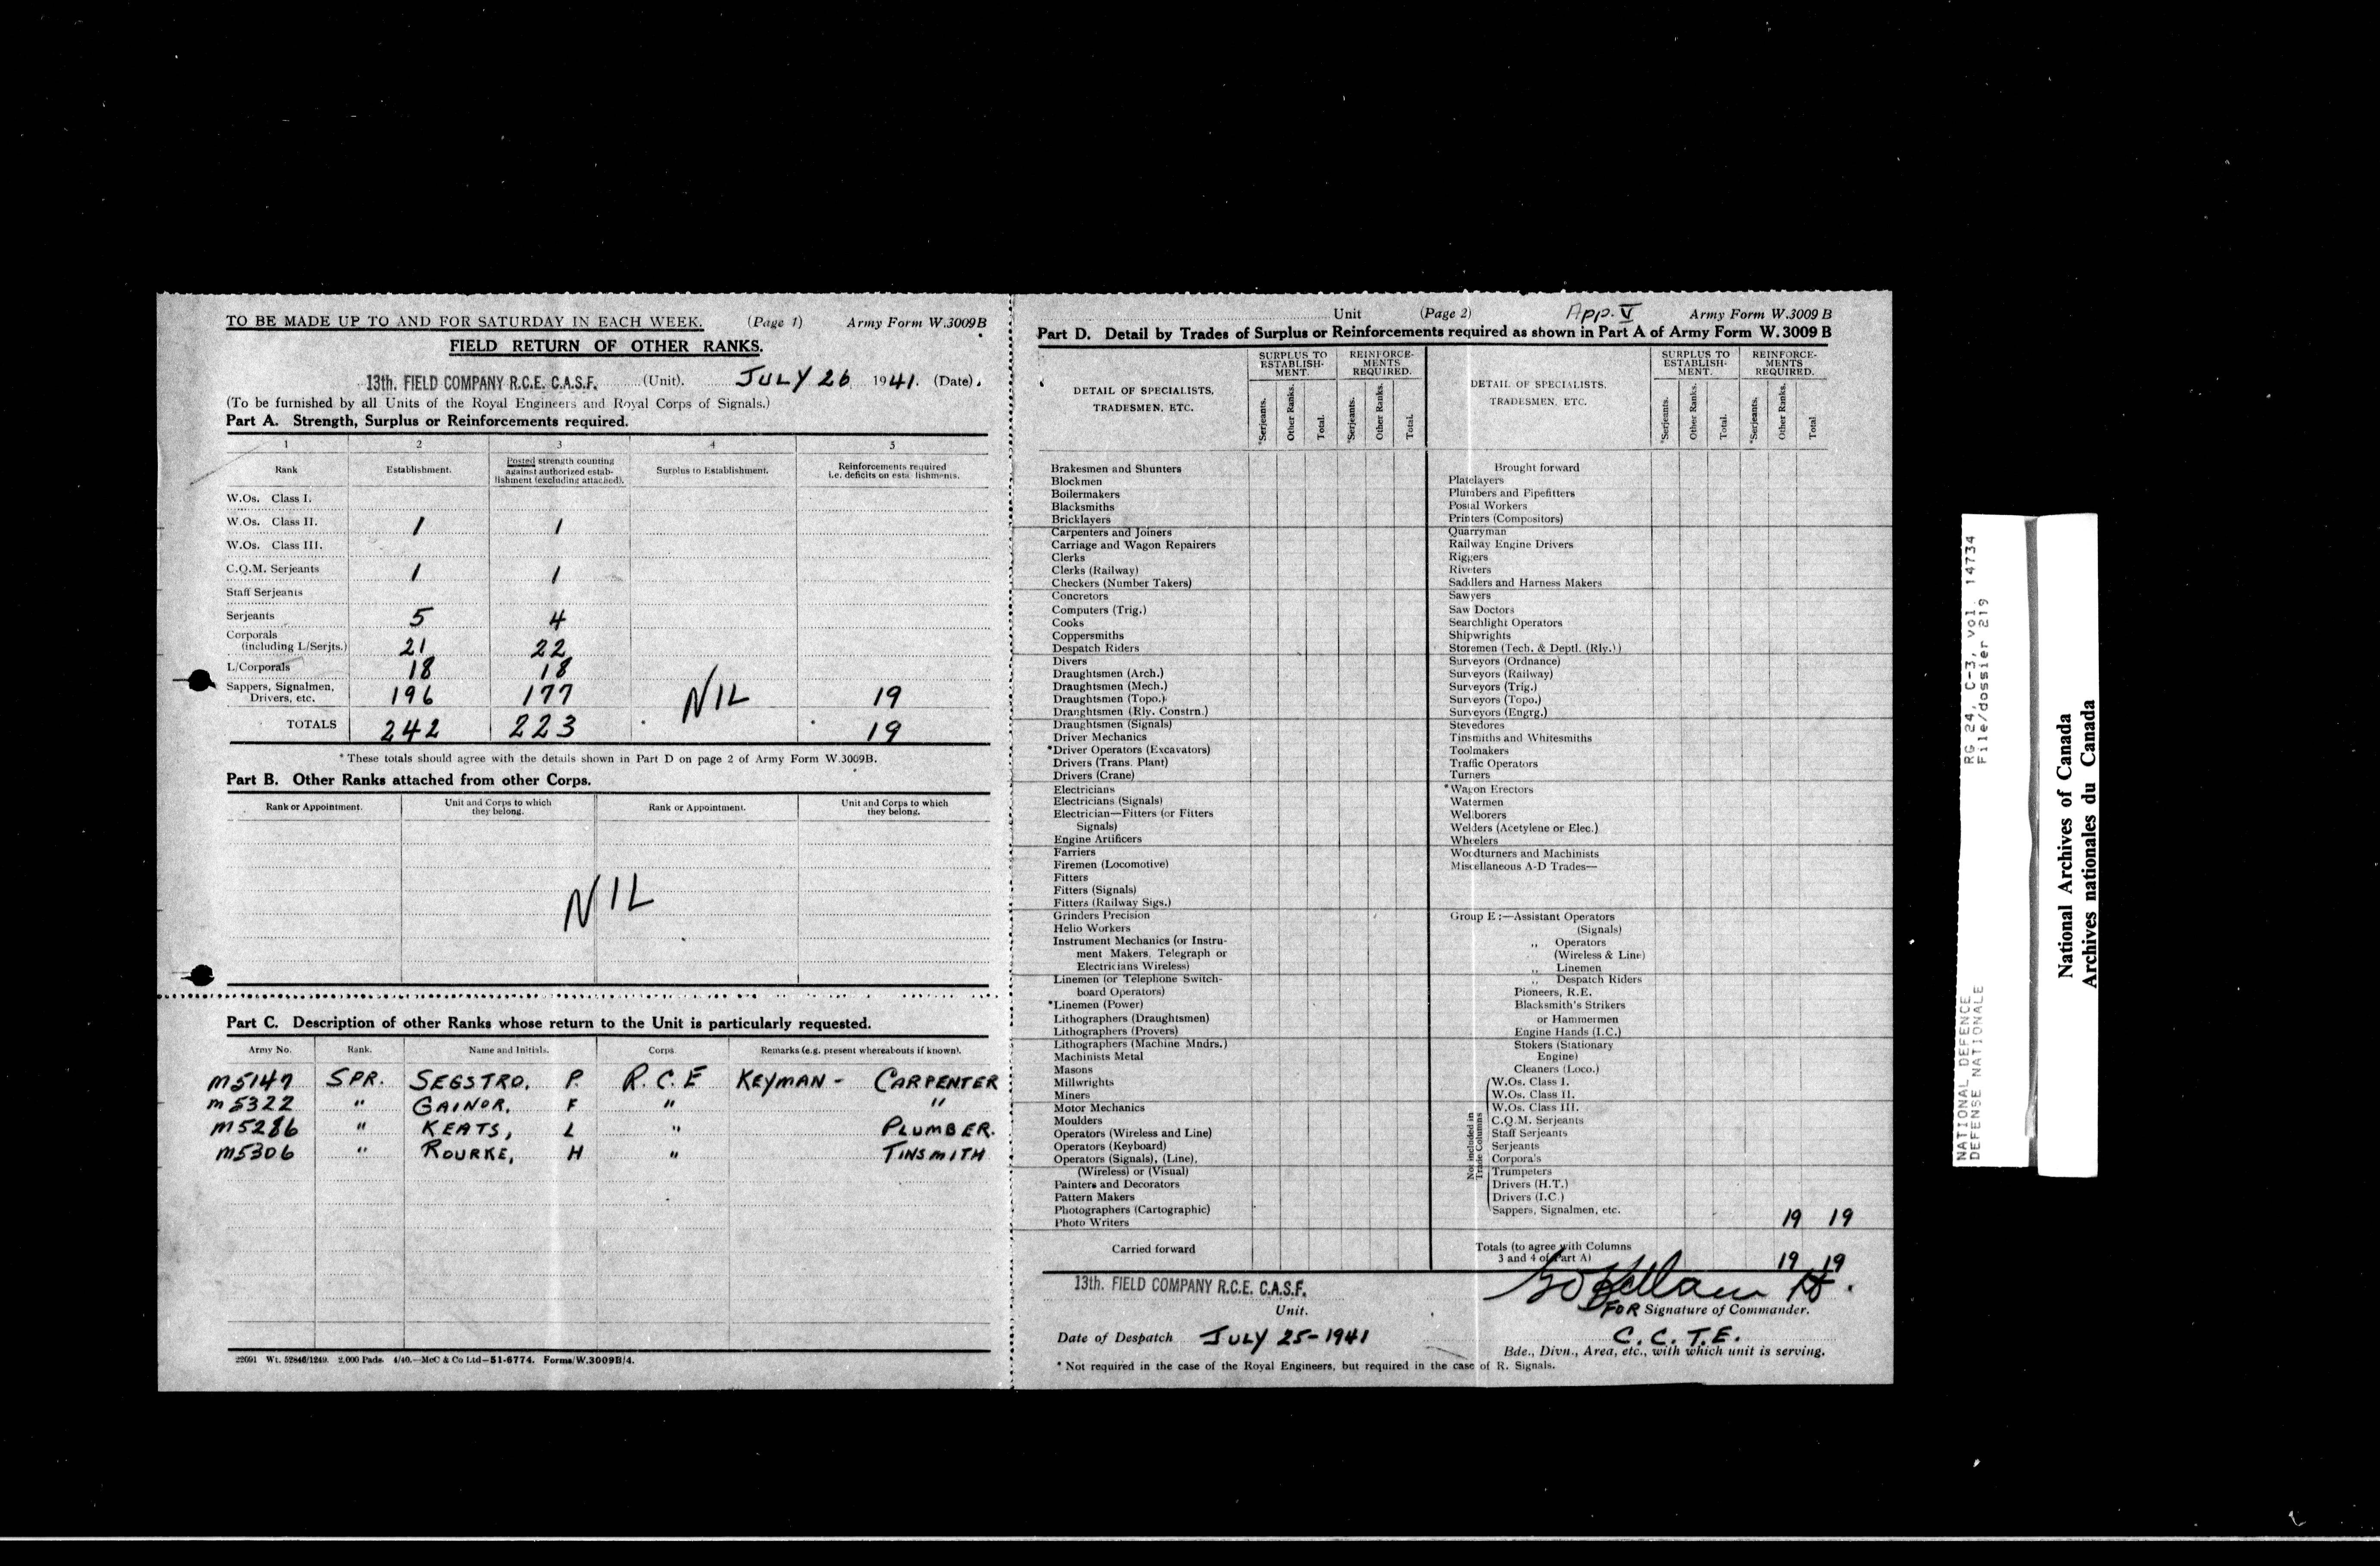 TO BE MADE UP TO AND FOR SATURDAY IN EACH WEEK. (Page 1) Army Form W.3009B
FIELD RETURN OF OTHER RANKS.
13th. FIELD COMPANY R.C.E. C.A.S.F. (Unit). JULY 26 1941. (Date).
(To be furnished by all Units of the Royal Engineers and Royal Corps of Signals.)
Part A. Strength, Surplus or Reinforcements required.
1 2 3 4 5
Rank Establishment. Posted strength counting against authorized estab-lishment (excluding attached). Surplus to Establishment. Reinforcements required i.e. deficits on establishments.
W.Os. Class I.
W.Os. Class II. 1 1
W.Os. Class III.
C.Q.M. Serjeants 1 1
Staff Serjeants
Serjeants 5 4
Corporals
(including L/Serjts.) 21 22
L/Corporals 18 18
Sappers, Signalmen,
Drivers, etc. 196 177 NIL 19
TOTALS 242 223 19
* These totals should agree with the details shown in Part D on page 2 of Army Form W.3009B.
Part B. Other Ranks attached from other Corps.
Rank or Appointment. Unit and Corps to which they belong. Rank or Appointment. Unit and Corps to which they belong.
NIL
Part C. Description of other Ranks whose return to the Unit is particularly requested.
Army No. Rank. Name and Initials. Corps Remarks (e.g. present whereabouts if known).
M5147 SPR. SEGSTRO, P. R.C.E KEYMAN - CARPENTER
M5322 " GAINOR, F " "
M5286 " KEATS, L " PLUMBER.
M5306 " ROURKE, H " TINSMITH
22091 Wt. 52846/1249. 2,000 Pads. 4/40.—McC & Co Ltd—51-6774. Forms/W.3009B/4.
Unit (Page 2) App. V Army Form W.3009 B
Part D. Detail by Trades of Surplus or Reinforcements required as shown in Part A of Army Form W.3009 B
DETAIL OF SPECIALISTS, TRADESMEN, ETC.
SURPLUS TO ESTABLISH-MENT. REINFORCE-MENTS REQUIRED.
*Serjeants. Other Ranks. Total. *Serjeants. Other Ranks. Total.
Brakesmen and Shunters
Blockmen
Boilermakers
Blacksmiths
Bricklayers
Carpenters and Joiners
Carriage and Wagon Repairers
Clerks
Clerks (Railway)
Checkers (Number Takers)
Concretors
Computers (Trig.)
Cooks
Coppersmiths
Despatch Riders
Divers
Draughtsmen (Arch.)
Draughtsmen (Mech.)
Draughtsmen (Topo.)
Draughtsmen (Rly. Constrn.)
Draughtsmen (Signals)
Driver Mechanics
*Driver Operators (Excavators)
Drivers (Trans. Plant)
Drivers (Crane)
Electricians
Electricians (Signals)
Electrician—Fitters (or Fitters
Signals)
Engine Artificers
Farriers
Firemen (Locomotive)
Fitters
Fitters (Signals)
Fitters (Railway Sigs.)
Grinders Precision
Helio Workers
Instrument Mechanics (or Instru-
ment Makers, Telegraph or
Electricians Wireless)
Linemen (or Telephone Switch-
board Operators)
*Linemen (Power)
Lithographers (Draughtsmen)
Lithographers (Provers)
Lithographers (Machine Mndrs.)
Machinists Metal
Masons
Millwrights
Miners
Motor Mechanics
Moulders
Operators (Wireless and Line)
Operators (Keyboard)
Operators (Signals), (Line),
(Wireless) or (Visual)
Painters and Decorators
Pattern Makers
Photographers (Cartographic)
Photo Writers
Carried forward
DETAIL OF SPECIALISTS, TRADESMEN, ETC.
SURPLUS TO ESTABLISH-MENT. REINFORCE-MENTS REQUIRED.
*Serjeants. Other Ranks. Total. *Serjeants. Other Ranks. Total
Brought forward
Platelayers
Plumbers and Pipefitters
Postal Workers
Printers (Compositors)
Quarryman
Railway Engine Drivers
Riggers
Riveters
Saddlers and Harness Makers
Sawyers
Saw Doctors
Searchlight Operators
Shipwrights
Storemen (Tech. & Deptl. (Rly.))
Surveyors (Ordnance)
Surveyors (Railway)
Surveyors (Trig.)
Surveyors (Topo.)
Surveyors (Engrg.)
Stevedores
Tinsmiths and Whitesmiths
Toolmakers
Traffic Operators
Turners
*Wagon Erectors
Watermen
Wellborers
Welders (Acetylene or Elec.)
Wheelers
Woodturners and Machinists
Miscellaneous A-D Trades—
Group E :—Assistant Operators
(Signals)
,, Operators
(Wireless & Line)
,, Linemen
,, Despatch Riders
Pioneers, R.E.
Blacksmith's Strikers
or Hammermen
Engine Hands (I.C.)
Stokers (Stationary
Engine)
Cleaners (Loco.)
Not included in Trade Columns
W.Os. Class I.
W.Os. Class II.
W.Os. Class III.
C.Q.M. Serjeants
Staff Serjeants
Serjeants
Corporals
Trumpeters
Drivers (H.T.)
Drivers (I.C.)
Sappers, Signalmen, etc. 19 19
Totals (to agree with Columns
3 and 4 of Part A) 19 19
13th. FIELD COMPANY R.C.E. C.A.S.F.
Unit. FOR Signature of Commander.
Date of Despatch JULY 25-1941 C.C.T.E.
Bde., Divn., Area, etc., with which unit is serving.
* Not required in the case of the Royal Engineers, but required in the case of R. Signals.
NATIONAL DEFENCE RG 24, C-3, vol 14734
DEFENSE NATIONALE File/dossier 219
National Archives of Canada
Archives nationales du Canada